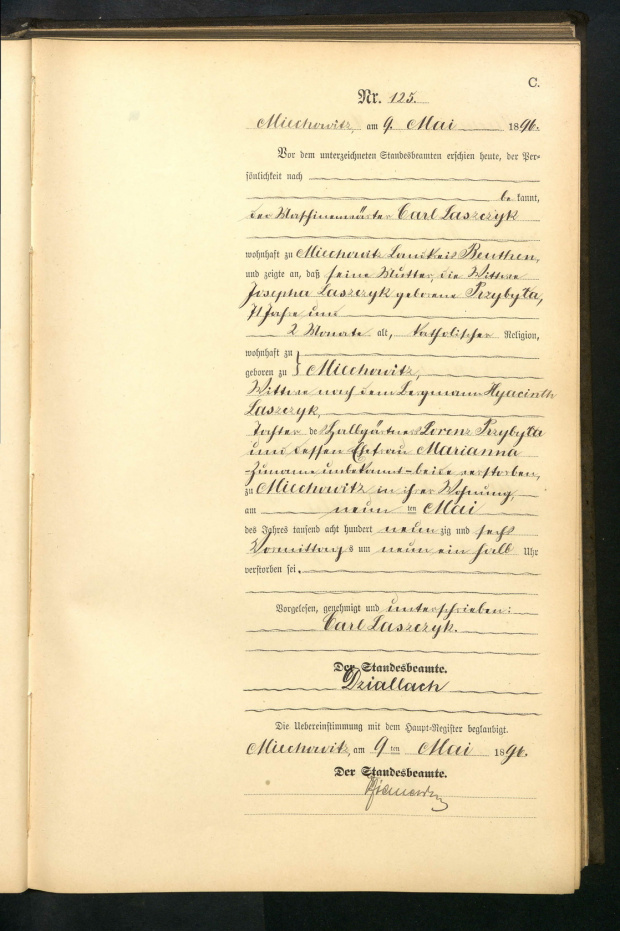 C.
Nr. 125.
Miechowitz, am 9. Mai 1896.
Vor dem unterzeichneten Standesbeamten erschien heute, der Per-
sönlichkeit nach
be kannt,
der Maschinenwärter Carl Laszczyk
wohnhaft zu Miechowitz Landkreis Beuthen,
und zeigte an, daß seine Mutter, die Wittwe
Josepha Laszczyk geborene Przybyła,
71 Jahre und
2 Monate alt, katholischer Religion,
wohnhaft zu
geboren zu } Miechowitz,
Wittwe nach dem Bergmann Hyacinth
Laszczyk,
Tochter des Lorenz Przybyła
und dessen Ehefrau Marianna
-Zuname unbekannt-beide verstorben,
zu Miechowitz in ihrer Wohnung,
am neun ten Mai
des Jahres tausend acht hundert neun zig und sechs
Vormittags um neun ein halb Uhr
verstorben sei.
Vorgelesen, genehmigt und unterschrieben:
Carl Laszczyk.
Der Standesbeamte.
Dziallach
Die Uebereinstimmung mit dem Haupt-Register beglaubigt.
Miechowitz, am 9 ten Mai 1896.
Der Standesbeamte.